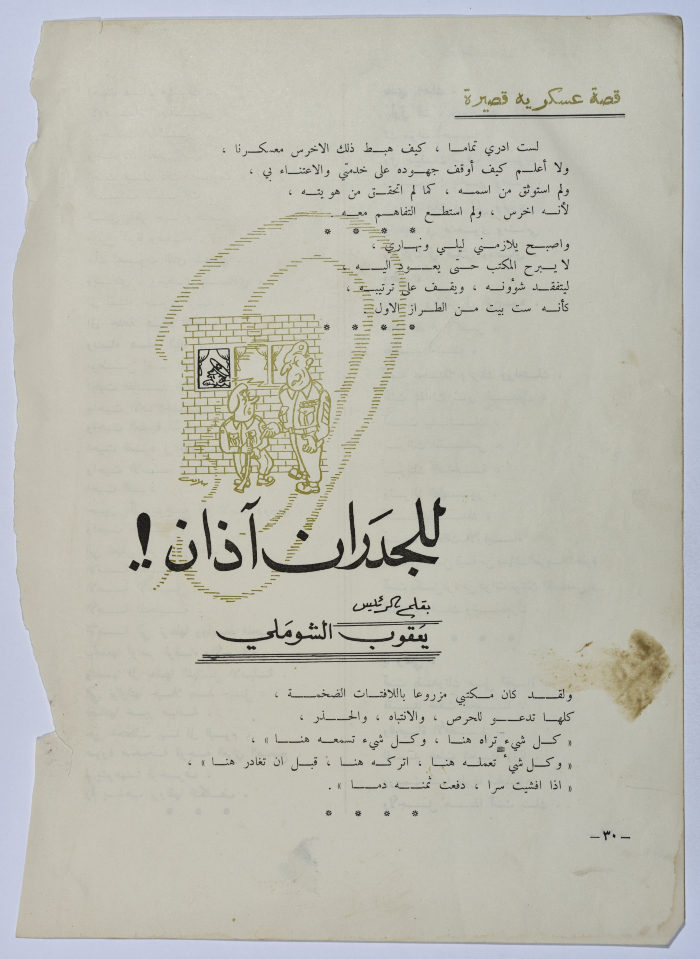 قصة عسكرية قصيرة
لست ادري تماما ، كيف هبط ذلك الاخرس معسكرنا ،
ولا أعلم كيف أوقف جهوده على خدمتي والاعتناء بي ،
ولم استوثق من اسمه ، كما لم اتحقق من هويته ،
لأنه اخرس ، ولم استطع التفاهم معه .
* * * *
واصبح يلازمني ليلي ونهاري ،
لا يبرح المكتب حتى يعود اليه ،
ليتفقد شؤونه ، ويقف على ترتيبه ،
كأنه ست بيت من الطراز الاول .
* * * *
للجدَران آذان !.
بقلم الرئيس
يعَقوب الشومَلي
ولقد كان مكتبي مزروعا باللافتات الضخمة ،
كلها تدعو للحرص ، والانتباه ، والحذر ،
« كل شيء تراه هنا ، وكل شيء تسمعه هنا » ،
« وكل شيء تعمله هنا ، اتركه هنا ، قبل ان تغادر هنا » ،
« اذا افشيت سرا ، دفعت ثمنه دما » .
* * * *
– ٣٠ –